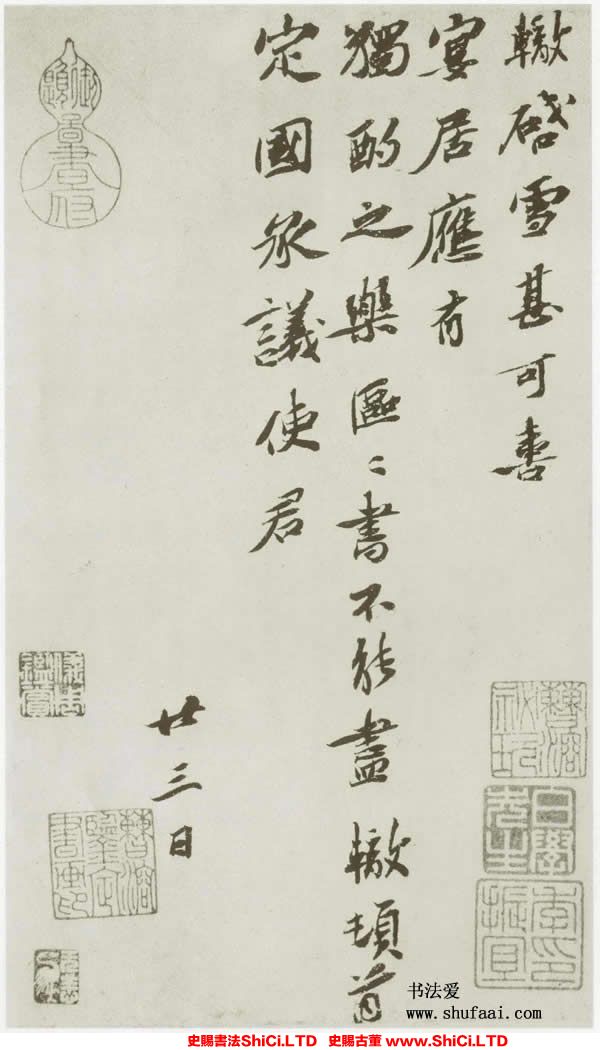 轍啓雪甚可喜
宴居應有
獨酌之樂區〻書不能盡 轍頓首
定國承議使君
廿三日
书法爱
www.shufaai.com
史賜書法ShiCi.LTD 史賜古董 www.ShiCi.LTD